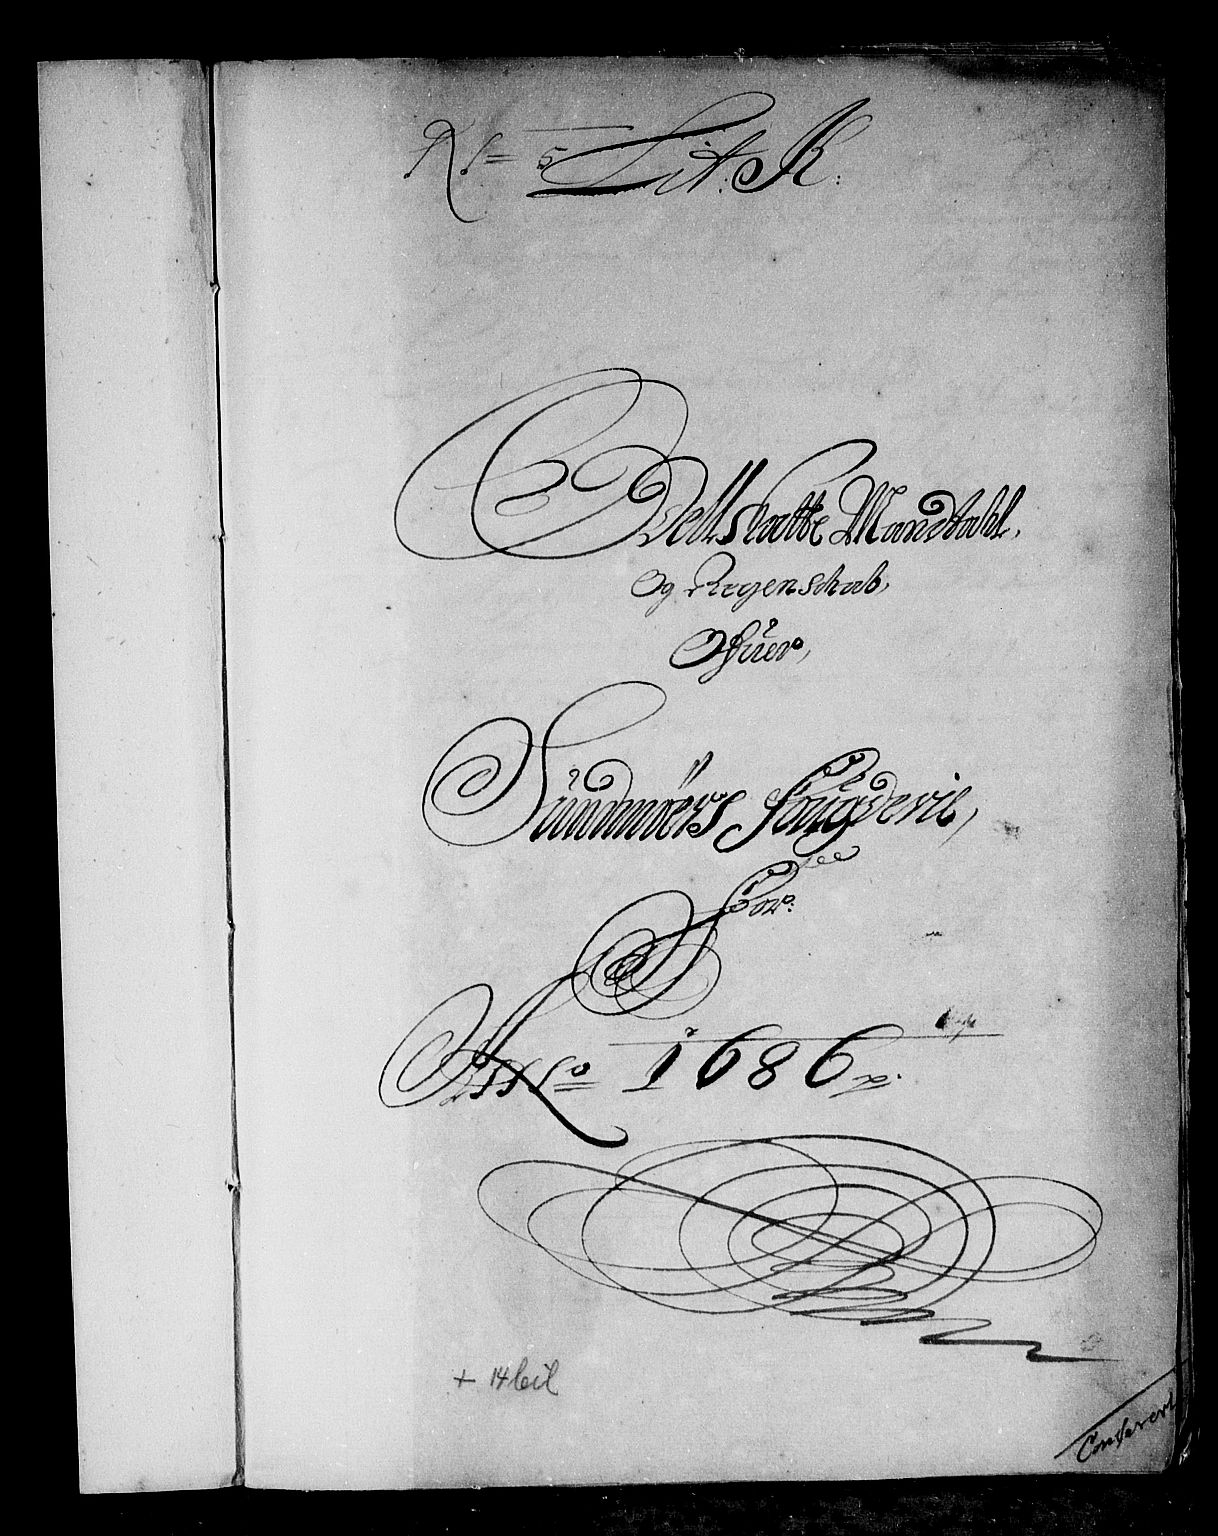 Lit. K:
Odellskatte Mandtahl,
Og Regenskab,
Ofuer,
Sundmøers Fougderie,
For:
Anno 1686
+ 14 bil
Confereret